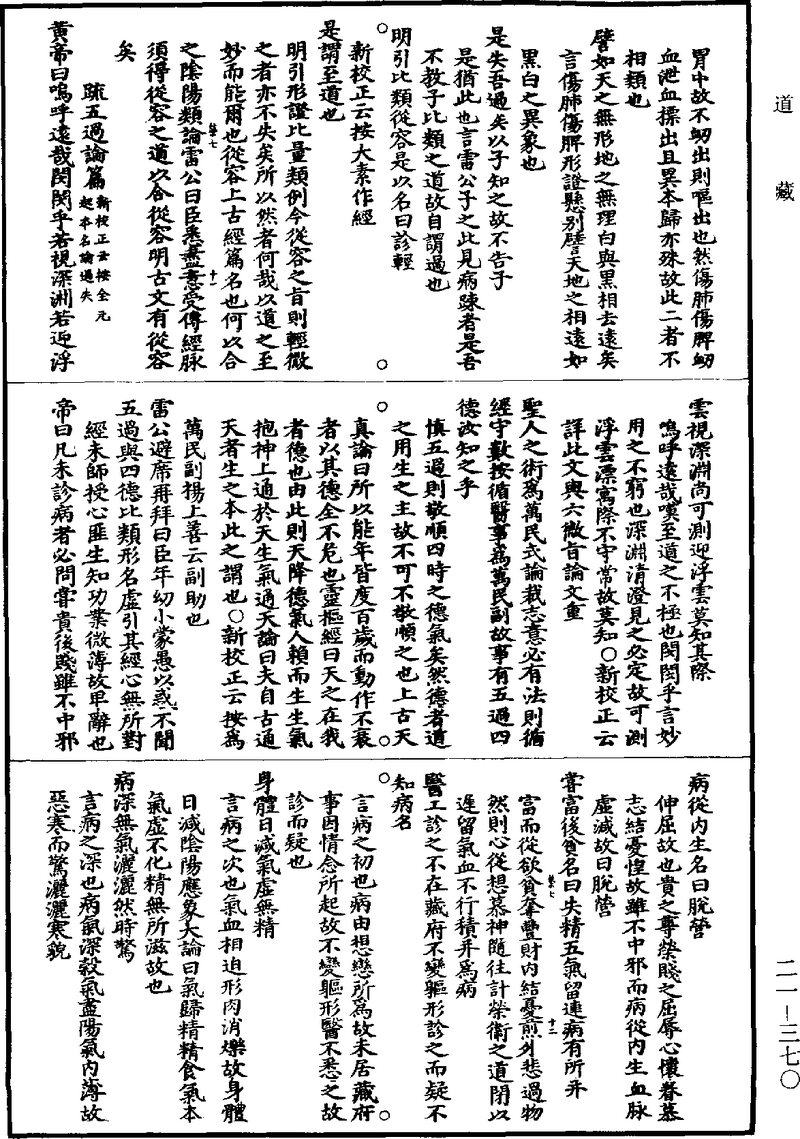 道藏
胃中故不衄出則嘔出也然傷肺傷脾衄
血泄血摽出且異本歸亦殊故此二者不
相類也
譬如天之無形地之無理白與黑相去遠矣
言傷肺傷脾形證懸別譬天地之相遠如
黑白之異象也
是失吾過矣以子知之故不告子
是猶此也言雷公子之此見病踈者是吾
不教子比類之道故自謂過也
明引比類從容是以名曰診輕
新校正云按大素作經
是謂至道也
明引形證比量類例今從容之旨則輕微
之者亦不失矣所以然者何哉以道之至
妙而能爾也從容上古經篇名也何以合
之陰陽類論雷公曰臣悉盡意受傳經脉
須得從容之道以合從容明古文有從容
矣
疏五過論篇新校正云按全元
起本名論過失
黃帝曰嗚呼遠哉閔閔乎若視深淵若迎浮
雲視深淵尚可測迎浮雲莫知其際
嗚呼遠哉嘆至道之不極也閔閔乎言妙
用之不窮也深淵清澄見之必定故可測
浮雲漂寓際不守常故莫知○新校正云
詳此文與六微旨論文重
聖人之術爲萬民式論裁志意必有法則循
經守數按循醫事爲萬民副故事有五過四
德汝知之乎
慎五過則敬順四時之德氣矣然德者道
之用生之主故不可不敬順之也上古天
真論曰所以能年皆度百歲而動作不衰
者以其德全不危也靈樞經曰天之在我
者德也由此則天降德氣人賴而生生氣
抱神上通於天生氣通天論曰夫自古通
天者生之本此之謂也○新校正云按爲
萬民副楊上善云副助也
雷公避席再拜曰臣年幼小蒙愚以惑不聞
五過與四德比類形名虛引其經心無所對
經未師授心匪生知功業微薄故卑辭也
帝曰凡未診病者必問嘗貴後賤雖不中邪
病從内生名曰脫營
伸屈故也貴之尊榮賤之屈辱心懷眷慕
志結憂惶故雖不中邪而病從内生血脉
虛減故曰脫營
嘗富後貧名曰失精五氣留連病有所并
富而從欲貧奪豐財内結憂煎外悲過物
然則心從想慕神隨往計榮衛之道閉以
遲留氣血不行積并爲病
醫工診之不在藏府不變軀形診之而疑不
知病名
言病之初也病由想戀所爲故未居藏府
事因情念所起故不變軀形醫不悉之故
診而疑也
身體日減氣虛無精
言病之次也氣血相迫形肉消爍故身體
日減陰陽應象大論曰氣歸精精食氣本
氣虛不化精無所滋故也
病深無氣灑灑然時驚
言病之深也病氣深穀氣盡陽氣内薄故
惡寒而驚灑灑寒貌
卷七 十一
卷七 十二
二一-三七〇